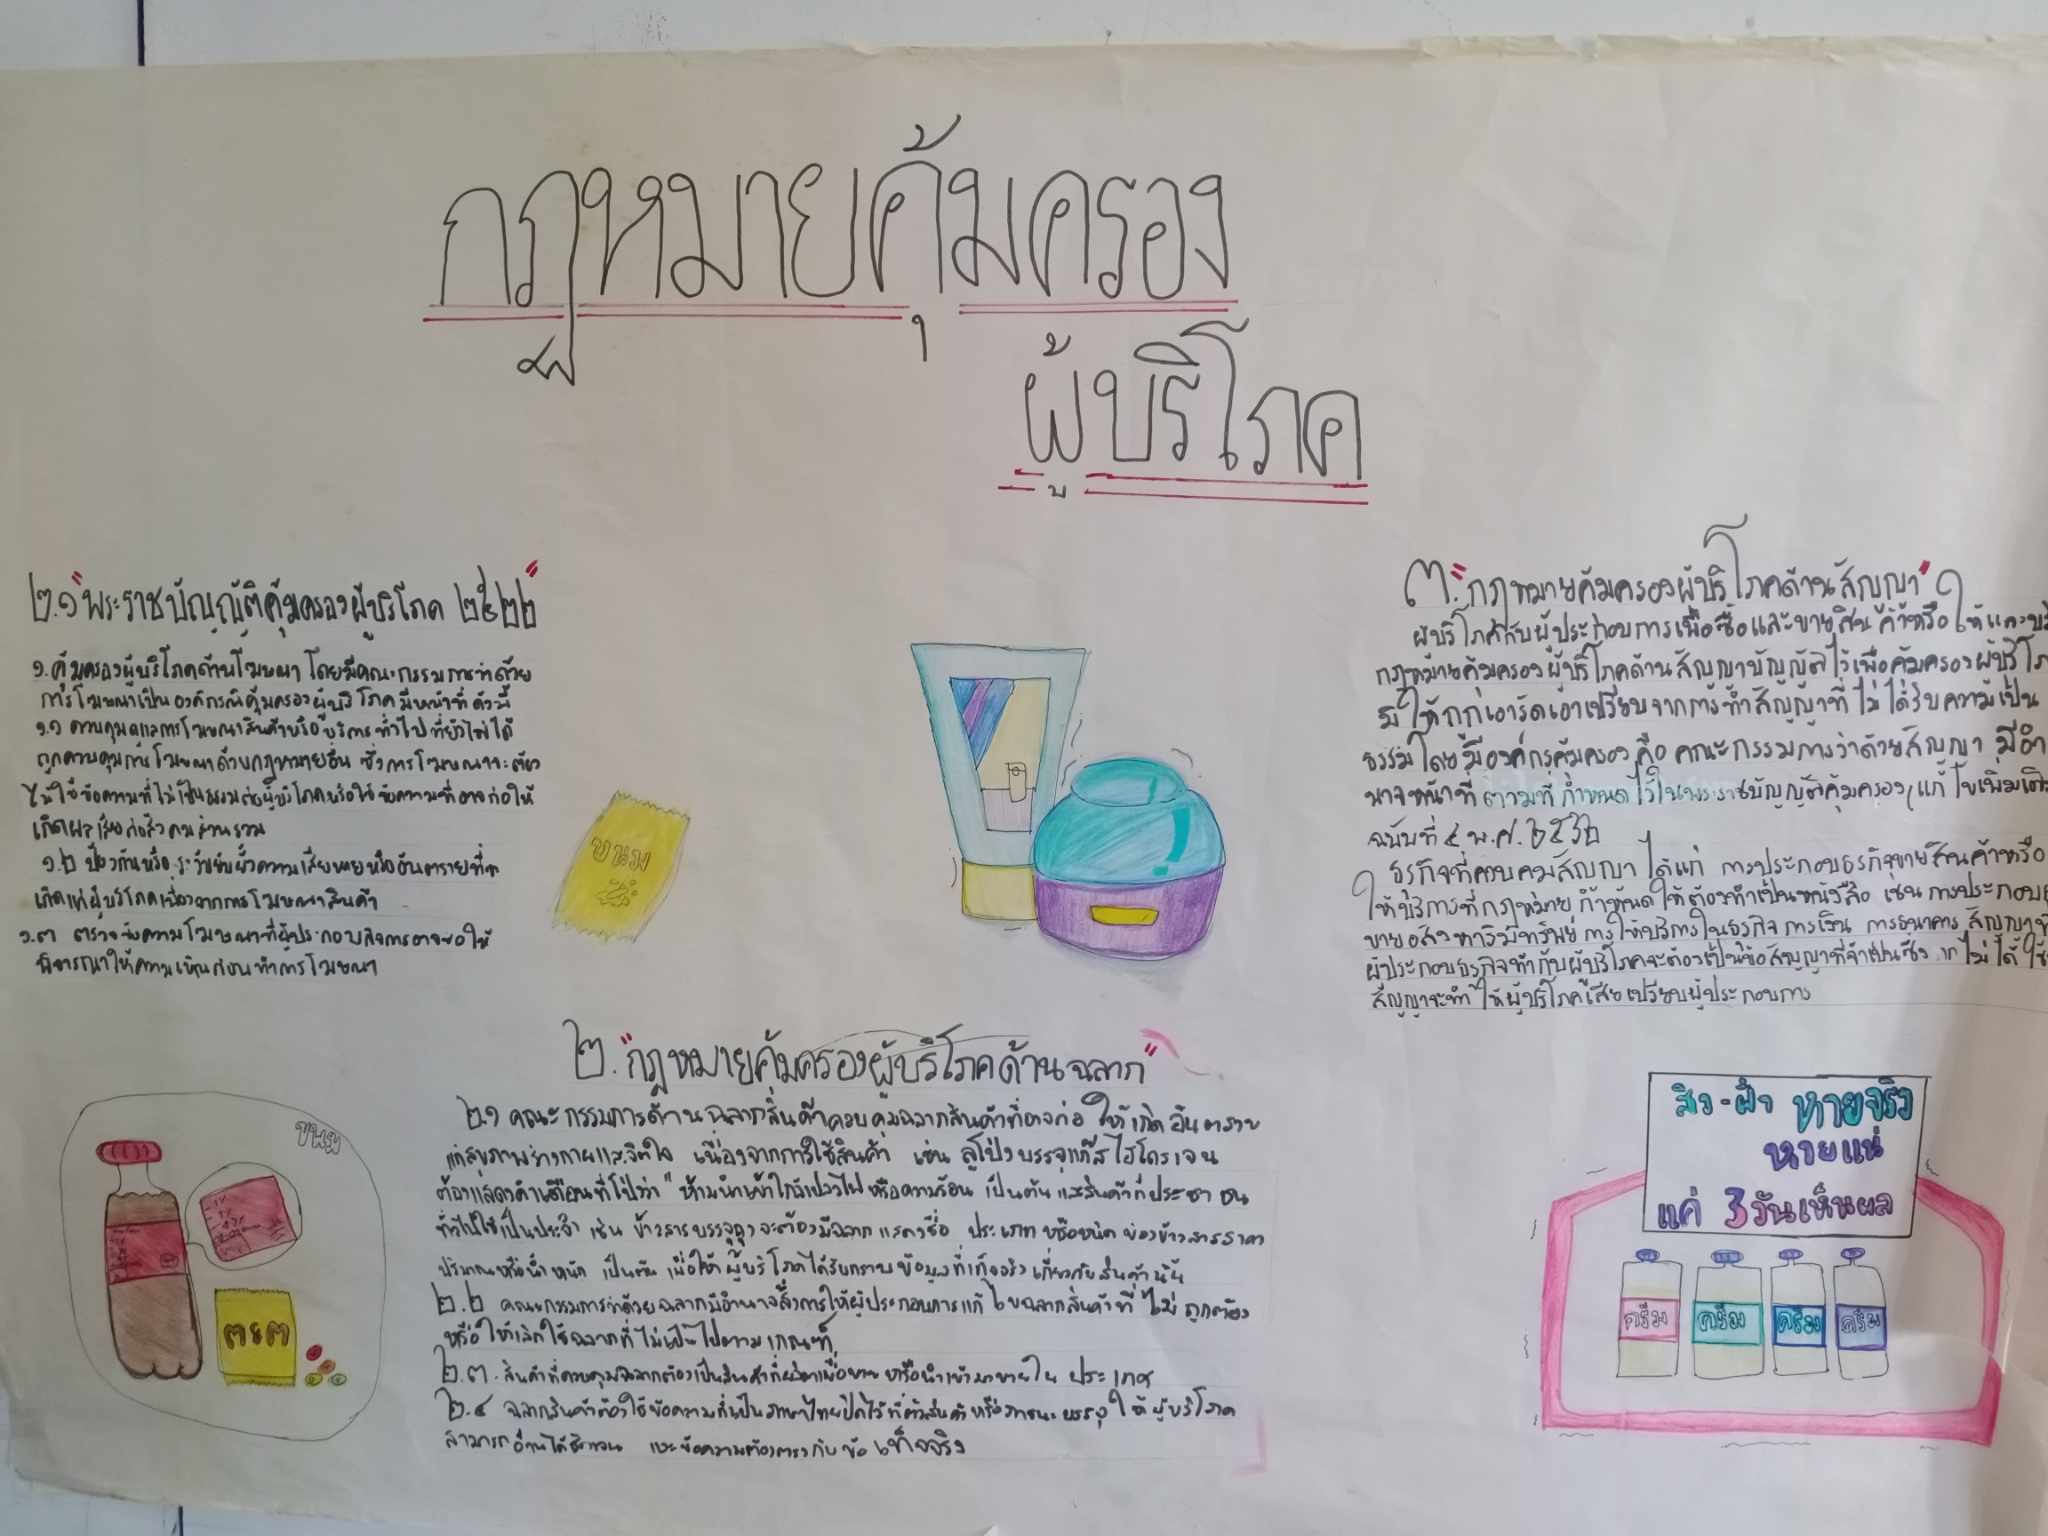 กฎหมายคุ้มครอง
ผู้บริโภค
๒.๑ "พระราชบัญญัติคุ้มครองผู้บริโภค ๒๕๒๒"
๑. คุ้มครองผู้บริโภคด้านโฆษณา โดยมีคณะกรรมการว่าด้วย
การโฆษณาเป็นองค์กรคุ้มครองผู้บริโภค มีหน้าที่ ดังนี้
๑.๑ ควบคุมดูแลการโฆษณาสินค้าหรือบริการทั่วไป ที่ยังไม่ได้
ถูกควบคุมการโฆษณาด้วยกฎหมายอื่น ซึ่งการโฆษณาจะต้อง
ไม่ใช้ข้อความที่ไม่เป็นธรรมต่อผู้บริโภคหรือใช้ข้อความที่อาจก่อให้
เกิดผลเสียต่อสังคมส่วนรวม
๑.๒ ป้องกันหรือระงับยับยั้งความเสียหายหรืออันตรายที่
เกิดแก่ผู้บริโภคเนื่องจากการโฆษณาสินค้า
๑.๓ ตรวจข้อความโฆษณาที่ผู้ประกอบกิจการอาจขอให้
พิจารณาให้ความเห็นก่อนทำการโฆษณา
ขนม
๓. "กฎหมายคุ้มครองผู้บริโภคด้านสัญญา"
ผู้บริโภคกับผู้ประกอบการเพื่อซื้อและขายสินค้าหรือให้และ
กฎหมายคุ้มครองผู้บริโภคด้านสัญญาบัญญัติไว้เพื่อคุ้มครองผู้บริโภ
มิให้ถูกเอารัดเอาเปรียบจากการทำสัญญาที่ไม่ได้รับความเป็น
ธรรมโดยมีองค์กรคุ้มครอง คือ คณะกรรมการว่าด้วยสัญญา มีอำ
นาจหน้าที่ตามที่กำหนดไว้ในพระราชบัญญัติคุ้มครอง(แก้ไขเพิ่มเติม
ฉบับที่
ธุรกิจที่ควบคุมสัญญา ได้แก่ การประกอบธุรกิจขายสินค้าหรือ
ให้บริการที่กฎหมายกำหนดให้ต้องทำเป็นหนังสือ เช่น การประกอบ
ขายอสังหาริมทรัพย์ การให้บริการในธุรกิจการเงิน การธนาคาร สัญญาที่
ผู้ประกอบธุรกิจทำกับผู้บริโภคจะต้องเป็นข้อสัญญาที่จำเป็นซึ่ง ไม่ได้ใช้
สัญญาจะทำให้ผู้บริโภคเสียเปรียบผู้ประกอบการ
๒. "กฎหมายคุ้มครองผู้บริโภคด้านฉลาก"
๒.๑ คณะกรรมการด้านฉลากสินค้าควบคุมฉลากสินค้าที่อาจก่อให้เกิดอันตราย
แก่สุขภาพร่างกายและจิตใจ เนื่องจากการใช้สินค้า เช่น ลูกโป่งบรรจุแก๊สไฮโดรเจน
ต้องแสดงคำเตือนที่โป่งว่า "ห้ามนำเข้าใกล้เปลวไฟ หรือความร้อน เป็นต้น และสินค้าที่ประชาชน
ทั่วไปใช้เป็นประจำ เช่น ข้าวสารบรรจุถุง จะต้องมีฉลากแสดงชื่อ ประเภท หรือชนิด ของข้าวสาร ราคา
ปริมาณหรือน้ำหนัก เป็นต้น เพื่อให้ผู้บริโภคได้รับทราบข้อมูลที่แท้จริงเกี่ยวกับสินค้านั้น
๒.๒ คณะกรรมการว่าด้วยฉลากมีอำนาจสั่งการให้ผู้ประกอบการแก้ไขฉลากสินค้าที่ไม่ถูกต้อง
หรือให้เลิกใช้ฉลากที่ไม่เป็นไปตามเกณฑ์
๒.๓. สินค้าที่ควบคุมฉลากต้องเป็นสินค้าที่ผลิตเพื่อขาย หรือนำเข้ามาขายในประเทศ
๒.๔ ฉลากสินค้าต้องใช้ข้อความที่เป็นภาษาไทยปิดไว้ที่ตัวสินค้าหรือภาชนะบรรจุให้ผู้บริโภค
สามารถอ่านได้ชัดเจน และข้อความต้องตรงกับข้อเท็จจริง
ขนม
สิว-ฝ้า หายจริง
หายแน่
แค่ 3 วันเห็นผล
ครีม ครีม ครีม ครีม